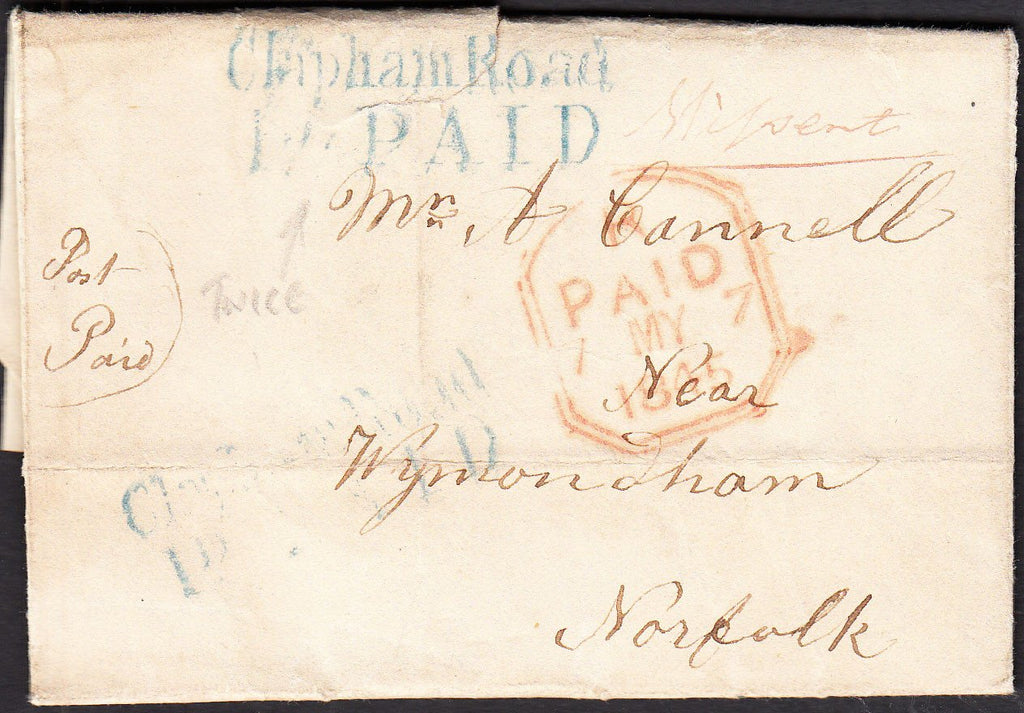 Clapham Road
1ᴰ PAID
Missent
Mr. A Cannell
Post
Paid
Twice
PAID
7 MY 7
1845
Near
Wymondham
Norfolk